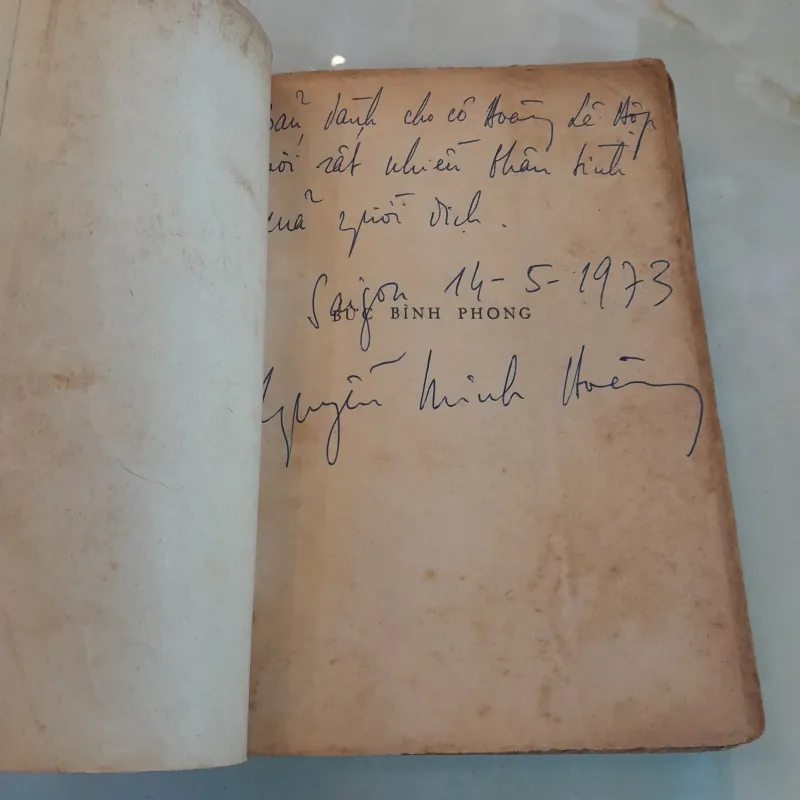 bản dành cho cô Hoàng Lê Hợp
với rất nhiều thân tình
của người dịch.
Saigon 14-5-1973
BỨC BÌNH PHONG
Nguyễn Minh Hoàng